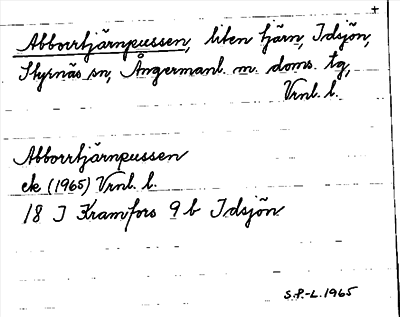 +
Abborrtjärnpussen, liten tjärn, Idsjön,
Styrnäs sn, Ångermanl. m. doms. tg,
Vrnl. l.
Abborrtjärnpussen
ek (1965) Vrnl. l.
18 I Kramfors 9 b Idsjön
S.P.-L. 1965